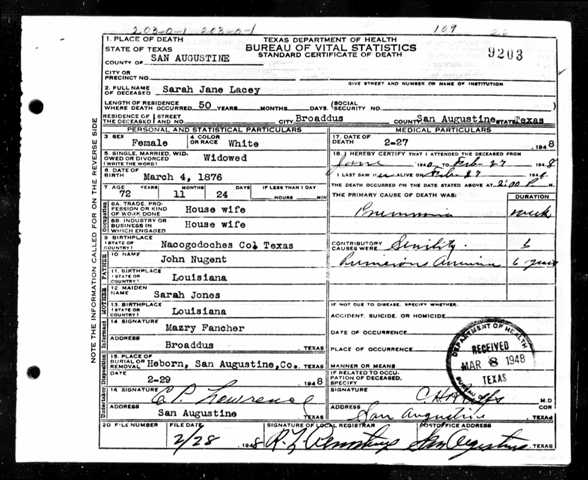 203-0-1 203-0-1 109
TEXAS DEPARTMENT OF HEALTH
BUREAU OF VITAL STATISTICS
STANDARD CERTIFICATE OF DEATH
9203
1. PLACE OF DEATH
STATE OF TEXAS
COUNTY OF SAN AUGUSTINE
CITY OR
PRECINCT NO.
GIVE STREET AND NUMBER OR NAME OF INSTITUTION
2. FULL NAME
OF DECEASED Sarah Jane Lacey
LENGTH OF RESIDENCE
WHERE DEATH OCCURRED 50 YEARS MONTHS DAYS (SOCIAL
SECURITY NO.
RESIDENCE OF (STREET
THE DECEASED (AND NO. CITY Broaddus COUNTY San Augustine STATE Texas
PERSONAL AND STATISTICAL PARTICULARS
3. SEX
Female
4. COLOR
OR RACE White
5. SINGLE, MARRIED, WID-
OWED OR DIVORCED
(WRITE THE WORD) Widowed
6. DATE OF
BIRTH March 4, 1876
7. AGE YEARS MONTHS DAYS IF LESS THAN 1 DAY
72 11 24 HOURS MIN
8A. TRADE, PRO-
FESSION OR KIND
OF WORK DONE House wife
8B. INDUSTRY OR
BUSINESS IN
WHICH ENGAGED House wife
9 BIRTHPLACE
(STATE OR
COUNTRY) Nacogodoches Co. Texas
10 NAME
John Nugent
11 BIRTHPLACE
(STATE OR
COUNTRY) Louisiana
12 MAIDEN
NAME Sarah Jones
13 BIRTHPLACE
(STATE OR
COUNTRY) Louisiana
14 SIGNATURE
Mazry Fancher
ADDRESS
Broaddus TEXAS
15. PLACE OF
BURIAL OR
REMOVAL Heborn, San Augustine, Co. TEXAS
DATE
2-29 1948
16 SIGNATURE
ADDRESS
San Augustine TEXAS
MEDICAL PARTICULARS
17 DATE OF
DEATH 2-27 1948
18. I HEREBY CERTIFY THAT I ATTENDED THE DECEASED FROM
TO Feb 27 1948
I LAST SAW ALIVE ON Feb 27 194
THE DEATH OCCURRED ON THE DATE STATED ABOVE AT 2:00 P M
THE PRIMARY CAUSE OF DEATH WAS: DURATION
Pneumonia week
CONTRIBUTORY
CAUSES WERE Senility 6
Pernicious Anemia 6 years
IF NOT DUE TO DISEASE, SPECIFY WHETHER:
ACCIDENT, SUICIDE, OR HOMICIDE
DATE OF OCCURRENCE
PLACE OF OCCURRENCE
MANNER OR MEANS
IF RELATED TO OCCU-
PATION OF DECEASED,
SPECIFY
DEPARTMENT OF HEALTH
RECEIVED
MAR 8 1948
TEXAS
SIGNATURE M.D.
ADDRESS
San Augustine TEXAS
20 FILE NUMBER FILE DATE SIGNATURE OF LOCAL REGISTRAR POSTOFFICE ADDRESS
2/28 1948 San Augustine TEXAS
NOTE THE INFORMATION CALLED FOR ON THE REVERSE SIDE
Occupation
FATHER
MOTHER
Informant
Undertaker Disposition